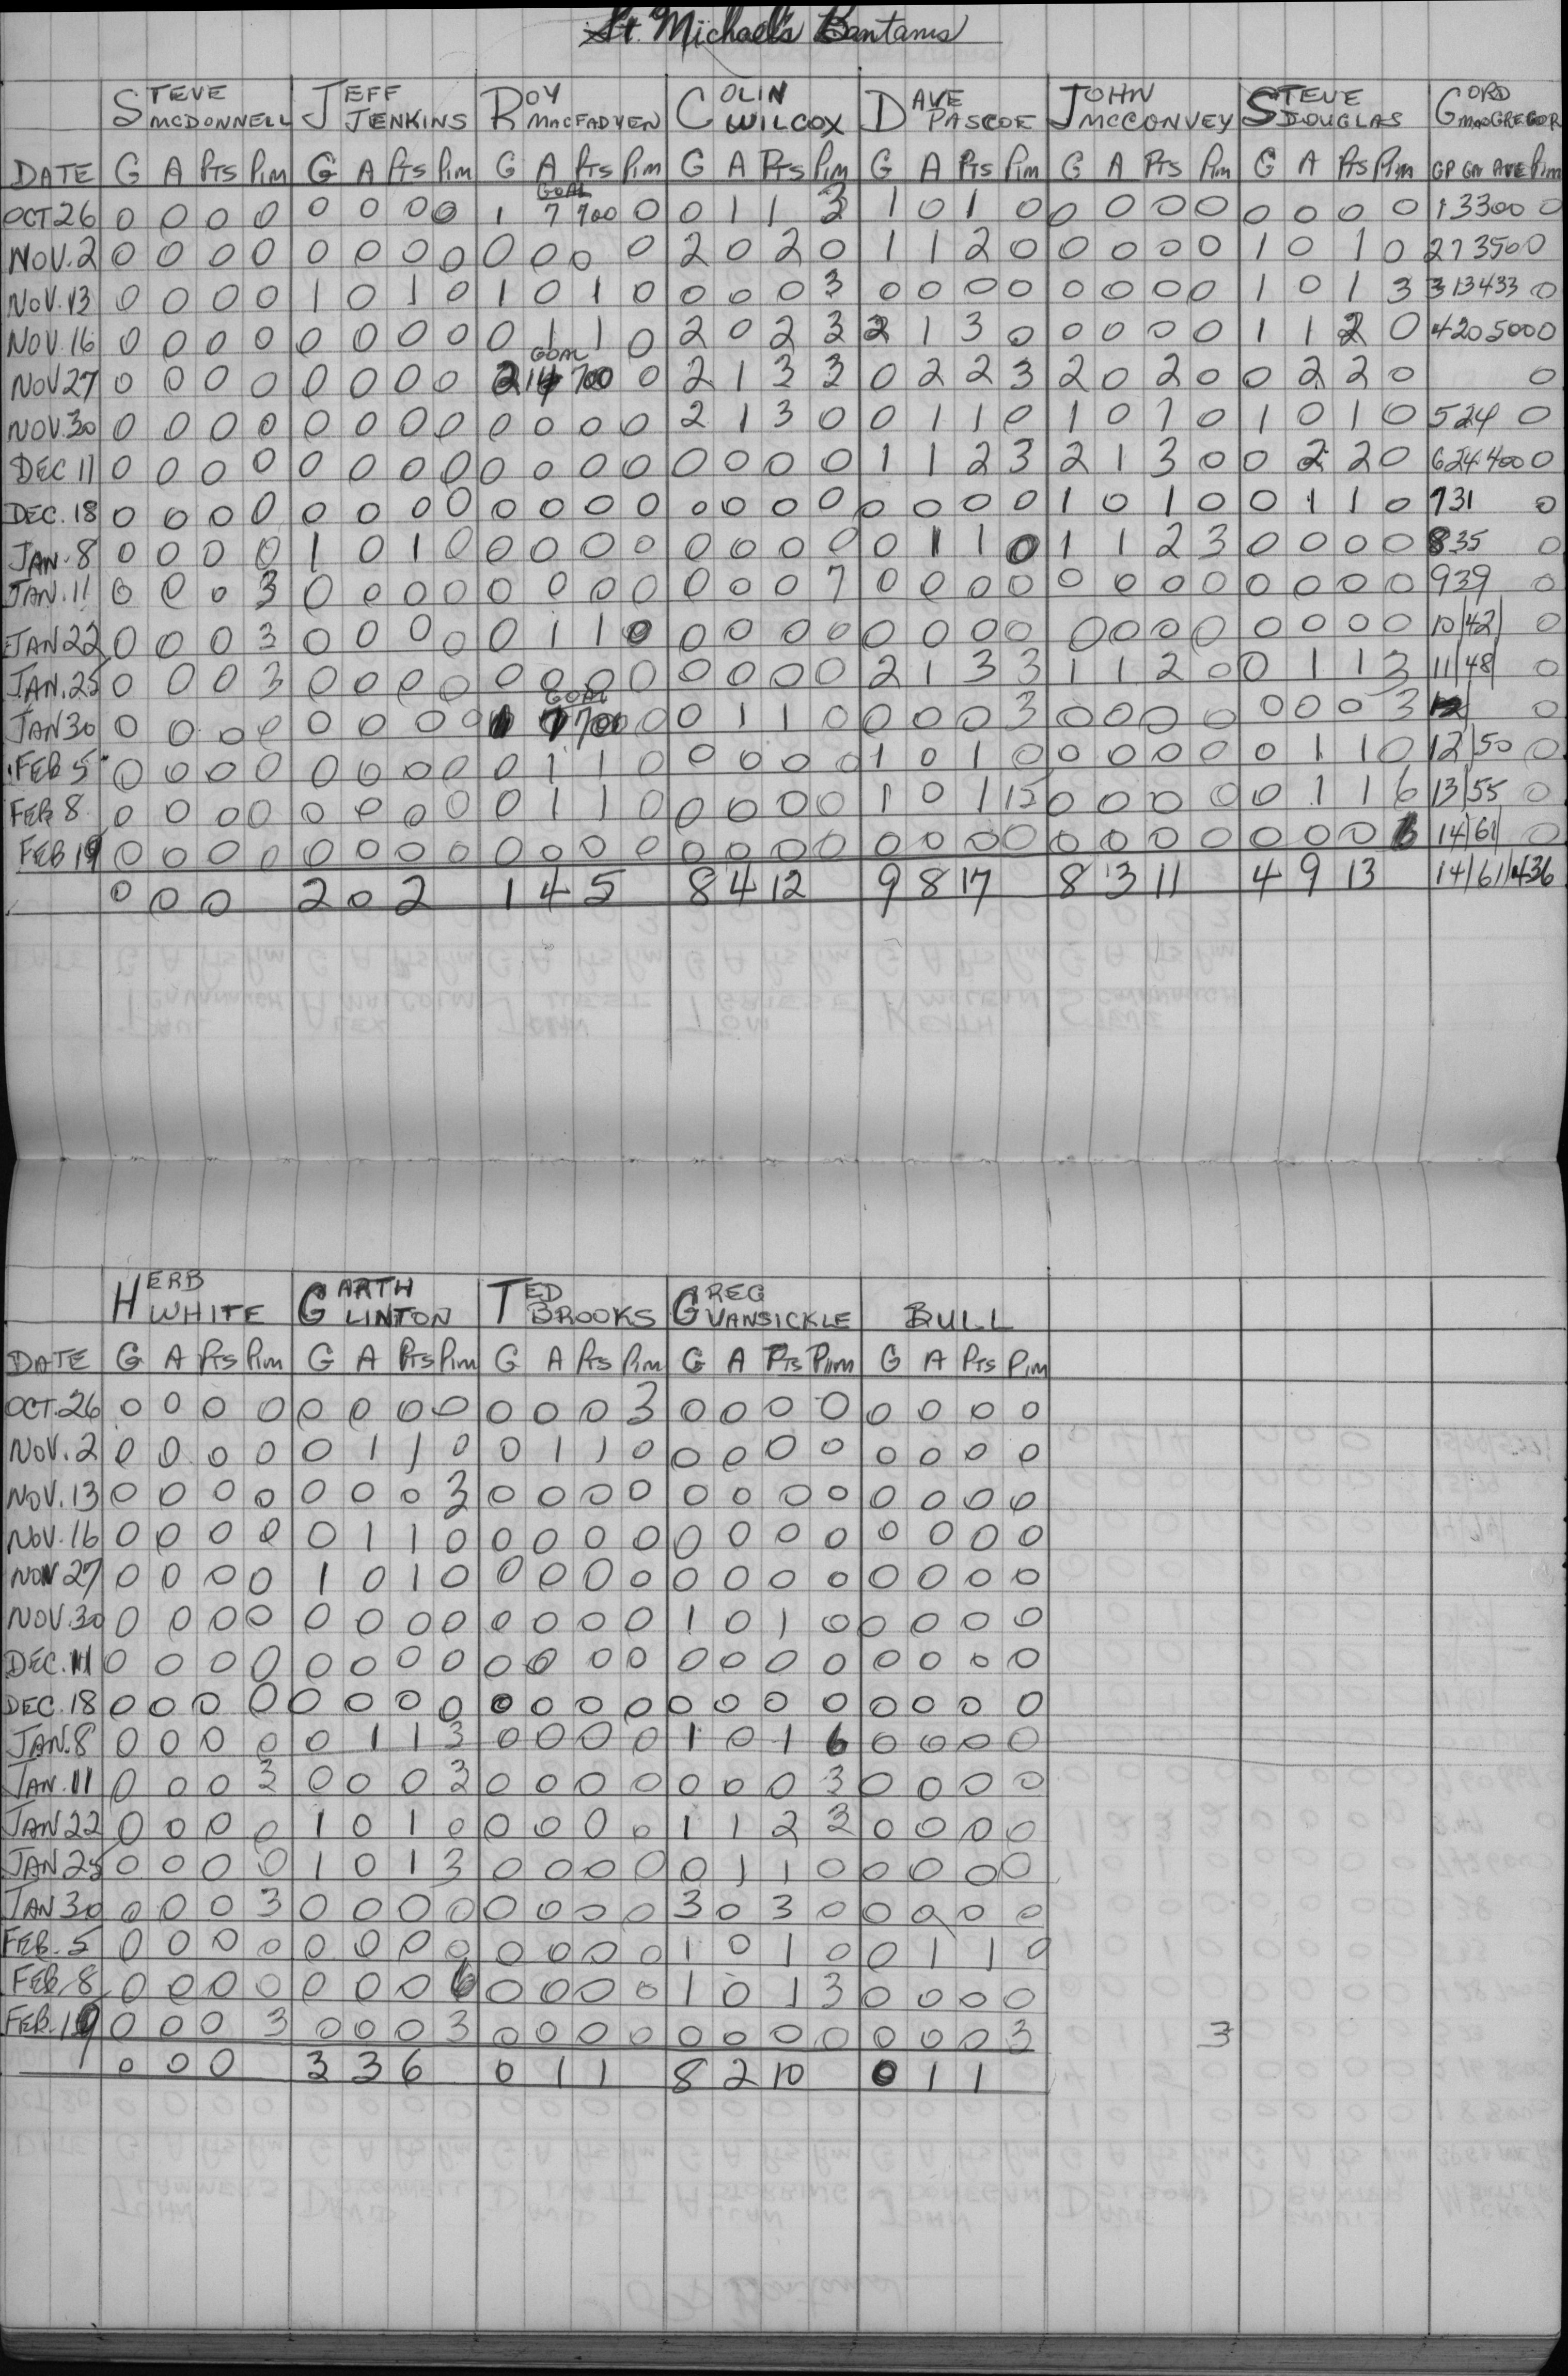 St. Michael's Bantams
STEVE MCDONNELL JEFF JENKINS ROY MACFADYEN COLIN WILCOX DAVE PASCOE JOHN MCCONVEY STEVE DOUGLAS GORD MACGREGOR
DATE G A Pts Pim G A Pts Pim G A Pts Pim G A Pts Pim G A Pts Pim G A Pts Pim G A Pts Pim GP GA AVE Pim
GOAL
OCT 26 0 0 0 0 0 0 0 0 1 7 700 0 0 1 1 3 1 0 1 0 0 0 0 0 0 0 0 0 1 3 300 0
NOV. 2 0 0 0 0 0 0 0 0 0 0 0 0 2 0 2 0 1 1 2 0 0 0 0 0 1 0 1 0 2 7 350 0
NOV. 13 0 0 0 0 1 0 1 0 1 0 1 0 0 0 0 3 0 0 0 0 0 0 0 0 1 0 1 3 3 13 433 0
NOV. 16 0 0 0 0 0 0 0 0 0 1 1 0 2 0 2 3 2 1 3 0 0 0 0 0 1 1 2 0 4 20 500 0
GOAL
NOV 27 0 0 0 0 0 0 0 0 2 14 700 0 2 1 3 3 0 2 2 3 2 0 2 0 0 2 2 0 0
NOV. 30 0 0 0 0 0 0 0 0 0 0 0 0 2 1 3 0 0 1 1 0 1 0 1 0 1 0 1 0 5 24 0
DEC 11 0 0 0 0 0 0 0 0 0 0 0 0 0 0 0 0 1 1 2 3 2 1 3 0 0 2 2 0 6 24 400 0
DEC. 18 0 0 0 0 0 0 0 0 0 0 0 0 0 0 0 0 0 0 0 0 1 0 1 0 0 1 1 0 7 31 0
JAN. 8 0 0 0 0 1 0 1 0 0 0 0 0 0 0 0 0 0 1 1 0 1 1 2 3 0 0 0 0 8 35 0
JAN. 11 0 0 0 3 0 0 0 0 0 0 0 0 0 0 0 7 0 0 0 0 0 0 0 0 0 0 0 0 9 39 0
JAN 22 0 0 0 3 0 0 0 0 0 1 1 0 0 0 0 0 0 0 0 0 0 0 0 0 0 0 0 0 10/42/ 0
JAN. 25 0 0 0 3 0 0 0 0 0 0 0 0 0 0 0 0 2 1 3 3 1 1 2 0 0 1 1 3 11/48/ 0
GOAL
JAN 30 0 0 0 0 0 0 0 0 1 7 700 0 0 1 1 0 0 0 0 3 0 0 0 0 0 0 0 3 0
FEB 5 0 0 0 0 0 0 0 0 0 1 1 0 0 0 0 0 1 0 1 0 0 0 0 0 0 1 1 0 12/50 0
FEB 8 0 0 0 0 0 0 0 0 0 1 1 0 0 0 0 0 1 0 1 15 0 0 0 0 0 1 1 6 13/55 0
FEB 19 0 0 0 0 0 0 0 0 0 0 0 0 0 0 0 0 0 0 0 0 0 0 0 0 0 0 0 6 14/61 0
0 0 0 2 0 2 1 4 5 8 4 12 9 8 17 8 3 11 4 9 13 14/61/436
HERB WHITE GARTH LINTON TED BROOKS GREG VANSICKLE BULL
DATE G A Pts Pim G A Pts Pim G A Pts Pim G A Pts Pim G A Pts Pim
OCT. 26 0 0 0 0 0 0 0 0 0 0 0 3 0 0 0 0 0 0 0 0
NOV. 2 0 0 0 0 0 1 1 0 0 1 1 0 0 0 0 0 0 0 0 0
NOV. 13 0 0 0 0 0 0 0 3 0 0 0 0 0 0 0 0 0 0 0 0
NOV. 16 0 0 0 0 0 1 1 0 0 0 0 0 0 0 0 0 0 0 0 0
NOV 27 0 0 0 0 1 0 1 0 0 0 0 0 0 0 0 0 0 0 0 0
NOV. 30 0 0 0 0 0 0 0 0 0 0 0 0 1 0 1 0 0 0 0 0
DEC. 11 0 0 0 0 0 0 0 0 0 0 0 0 0 0 0 0 0 0 0 0
DEC. 18 0 0 0 0 0 0 0 0 0 0 0 0 0 0 0 0 0 0 0 0
JAN. 8 0 0 0 0 0 1 1 3 0 0 0 0 1 0 1 6 0 0 0 0
JAN. 11 0 0 0 3 0 0 0 3 0 0 0 0 0 0 0 3 0 0 0 0
JAN 22 0 0 0 0 1 0 1 0 0 0 0 0 1 1 2 3 0 0 0 0
JAN 25 0 0 0 0 1 0 1 3 0 0 0 0 0 1 1 0 0 0 0 0
JAN 30 0 0 0 3 0 0 0 0 0 0 0 0 3 0 3 0 0 0 0 0
FEB. 5 0 0 0 0 0 0 0 0 0 0 0 0 1 0 1 0 0 1 1 0
FEB 8 0 0 0 0 0 0 0 6 0 0 0 0 1 0 1 3 0 0 0 0
FEB. 19 0 0 0 3 0 0 0 3 0 0 0 0 0 0 0 0 0 0 0 3 3
0 0 0 3 3 6 0 1 1 8 2 10 0 1 1